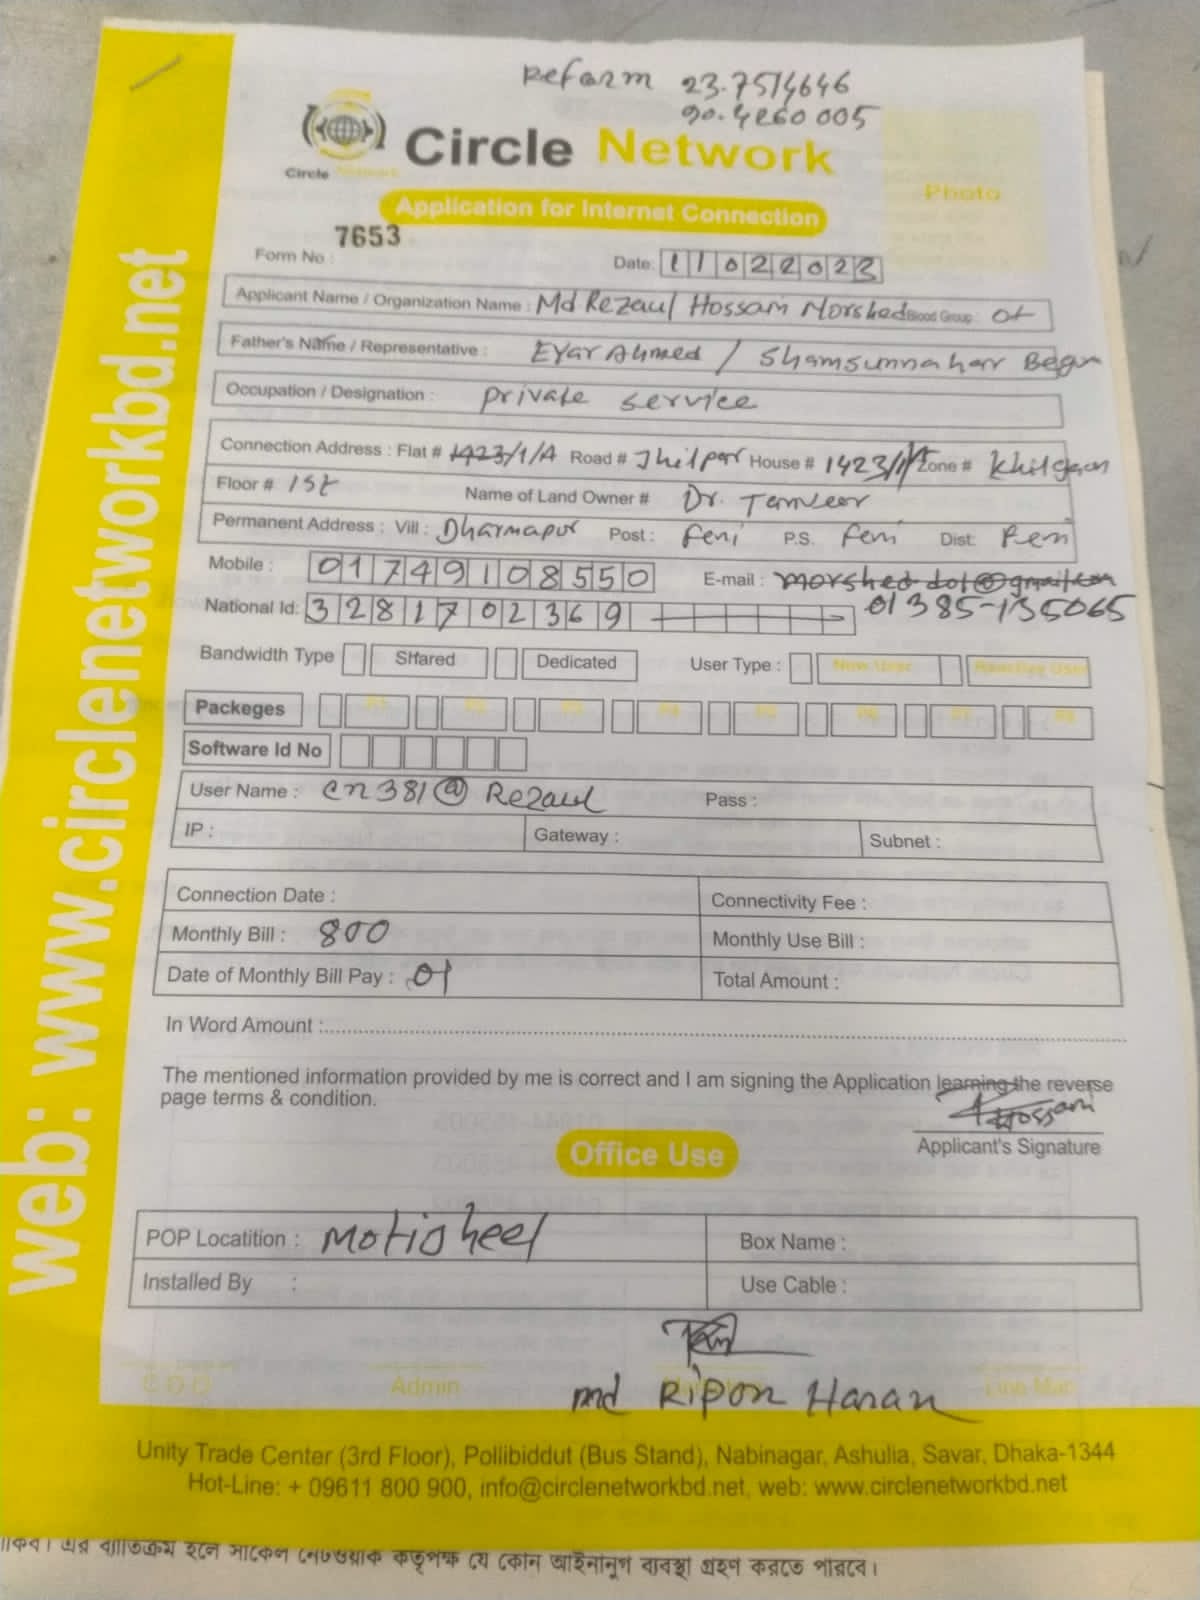 Reform 23.7514646
90.4260005
Circle Network
Circle Network
Photo
Application for Internet Connection
Form No : 7653
Date: 11022023
Applicant Name / Organization Name : Md Rezaul Hossain Morshed Blood Group: O+
Father's Name / Representative : Eyar Ahmed / Shamsunnahar Begum
Occupation / Designation : private service
Connection Address : Flat # 1423/1/A Road # Jhilpar House # 1423/1/A Zone # Khilgaon
Floor # 1st Name of Land Owner # Dr. Tanveer
Permanent Address : Vill : Dharmapur Post : Feni P.S. Feni Dist: Feni
Mobile : 01749108550 E-mail : morshed.dot@gmail.com
National Id: 3281702369 01385-135065
Bandwidth Type Shared Dedicated User Type : New User Reactive User
Packeges P1 P2 P3 P4 P5 P6 P7 P8
Software Id No
User Name : cn381@Rezaul Pass :
IP : Gateway : Subnet :
Connection Date : Connectivity Fee :
Monthly Bill : 800 Monthly Use Bill :
Date of Monthly Bill Pay : 01 Total Amount :
In Word Amount :
The mentioned information provided by me is correct and I am signing the Application learning the reverse
page terms & condition.
Hossain
Applicant's Signature
Office Use
POP Locatition : Motijheel Box Name :
Installed By : Use Cable :
Admin Line Man
md Ripon Hasan
Unity Trade Center (3rd Floor), Pollibiddut (Bus Stand), Nabinagar, Ashulia, Savar, Dhaka-1344
Hot-Line: + 09611 800 900, info@circlenetworkbd.net, web: www.circlenetworkbd.net
web: www.circlenetworkbd.net
থাকিব। এর ব্যাতিক্রম হলে সার্কেল নেটওয়ার্ক কর্তৃপক্ষ যে কোন আইনানুগ ব্যবস্থা গ্রহণ করতে পারবে।